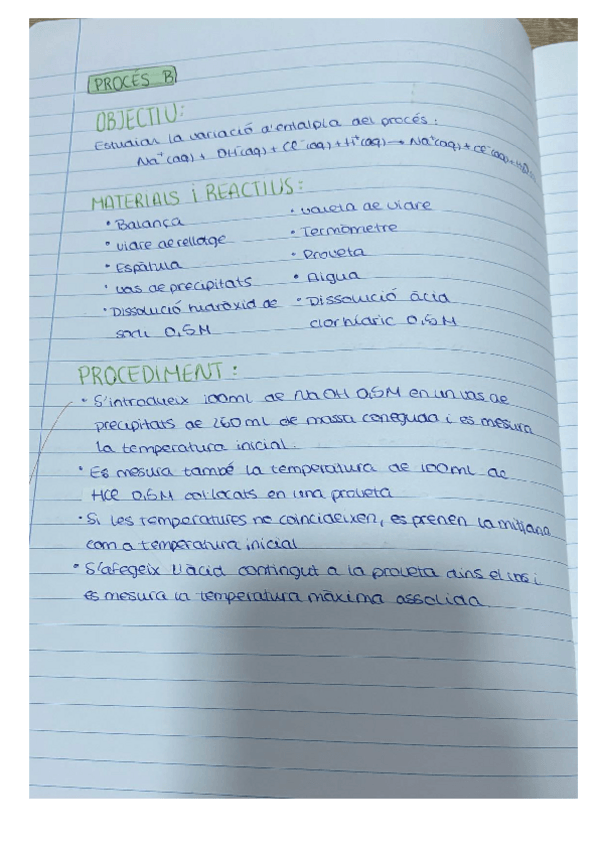 PROCÉS B
OBJECTIU:
Estudiar la variació d'entalpia del procés:
Na⁺(aq) + OH⁻(aq) + Cl⁻(aq) + H⁺(aq) → Na⁺(aq) + Cl⁻(aq) + H₂O
MATERIALS i REACTIUS:
• Balança
• vidre de rellotge
• Espàtula
• vas de precipitats
• Dissolució hidròxid de
sodi 0,5M
• vareta de vidre
• Termòmetre
• Proveta
• Aigua
• Dissolució àcid
clorhídric 0,5M
PROCEDIMENT:
• S'introdueix 100ml de NaOH 0,5M en un vas de
precipitats de 250ml de massa coneguda i es mesura
la temperatura inicial.
• Es mesura també la temperatura de 100ml de
HCl 0,5M col·locats en una proveta
• Si les temperatures no coincideixen, es prenen la mitjana
com a temperatura inicial
• S'afegeix l'àcid contingut a la proveta dins el vas i
es mesura la temperatura màxima assolida.